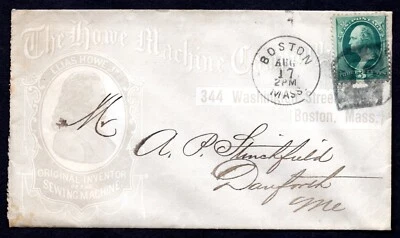 The Howe Machine Co.
ELIAS HOWE JR.
BOSTON
AUG
17
2PM
MASS.
344 Washington Street,
Boston, Mass.
Mr
A. P. Stinchfield
Danforth
Me
ORIGINAL INVENTOR
OF THE
SEWING MACHINE